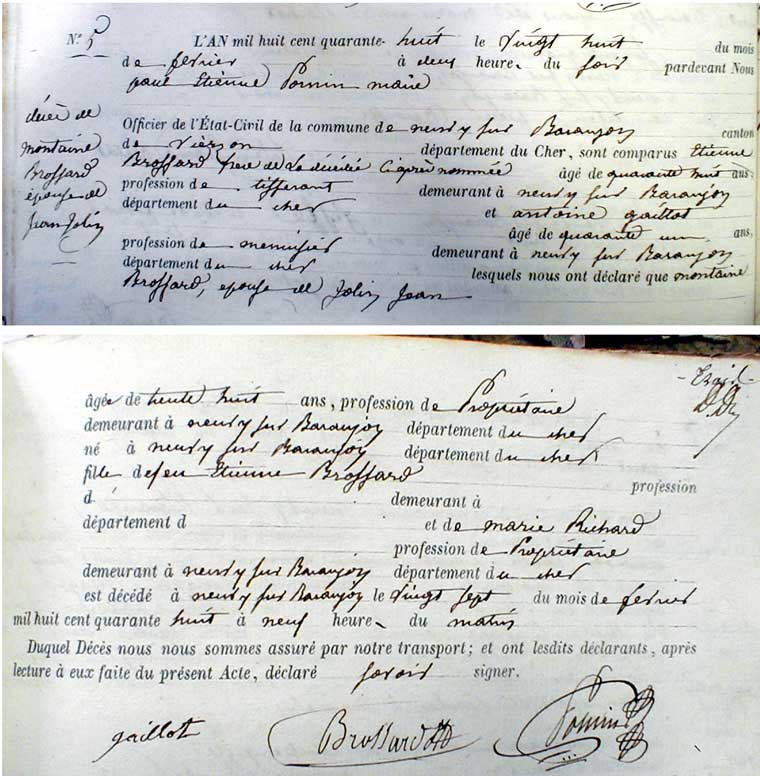 N.º 5 L'AN mil huit cent quarante- huit le vingt huit du mois
de fevrier à deux heures du soir pardevant Nous
paul Etienne Pornin maire
décès de
montaine
Brossard
épouse de
Jean Jolin
Officier de l'État-Civil de la commune de neuvy sur Baranjon canton
de vierzon département du Cher, sont comparus Etienne
Brossard frere de La décédée Ci après nommée âgé de quarante huit ans,
profession de tisserant demeurant à neuvy sur Baranjon
département du cher et antoine gaillot
âgé de quarante un ans,
profession de menuisier demeurant à neuvy sur Baranjon
département du cher lesquels nous ont déclaré que montaine
Brossard, epouse de Jolin Jean
âgée de trente huit ans, profession de Propriétaire
demeurant à neuvy sur Baranjon département du cher
né à neuvy sur Baranjon département du cher
fille de feu Etienne Brossard profession
d demeurant à
département d et de marie Richard
profession de Propriétaire
demeurant à neuvy sur Baranjon département du cher
est décédé à neuvy sur Baranjon le vingt sept du mois de fevrier
mil huit cent quarante huit à neuf heures du matin
Duquel Décès nous nous sommes assuré par notre transport; et ont lesdits déclarants, après
lecture à eux faite du présent Acte, déclaré savoir signer.
gaillot Brossard Pornin